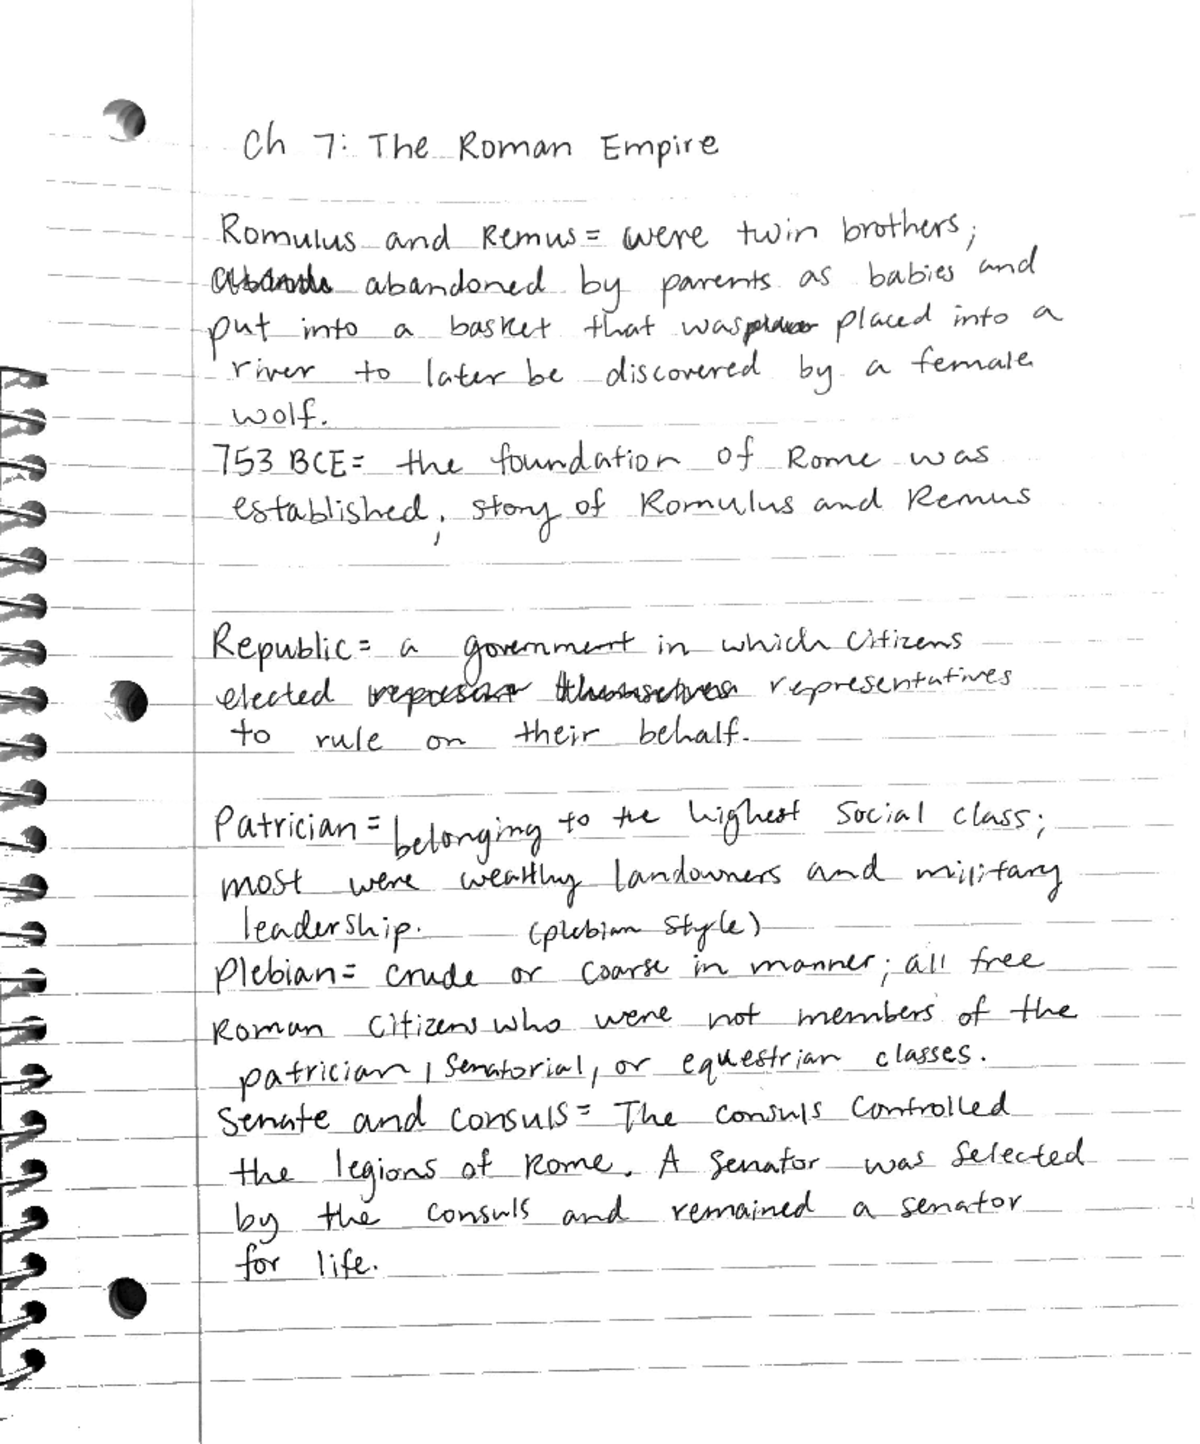 Ch 7: The Roman Empire
Romulus and Remus = were twin brothers;
abandoned by parents as babies and
put into a basket that was placed into a
river to later be discovered by a female
wolf.
753 BCE = the foundation of Rome was
established; story of Romulus and Remus
Republic = a government in which citizens
elected represent themselves representatives
to rule on their behalf.
Patrician = belonging to the highest social class;
most were wealthy landowners and military
leadership. (plebian style)
Plebian = crude or coarse in manner; all free
Roman citizens who were not members of the
patrician, senatorial, or equestrian classes.
Senate and consuls = The consuls controlled
the legions of Rome. A senator was selected
by the consuls and remained a senator
for life.